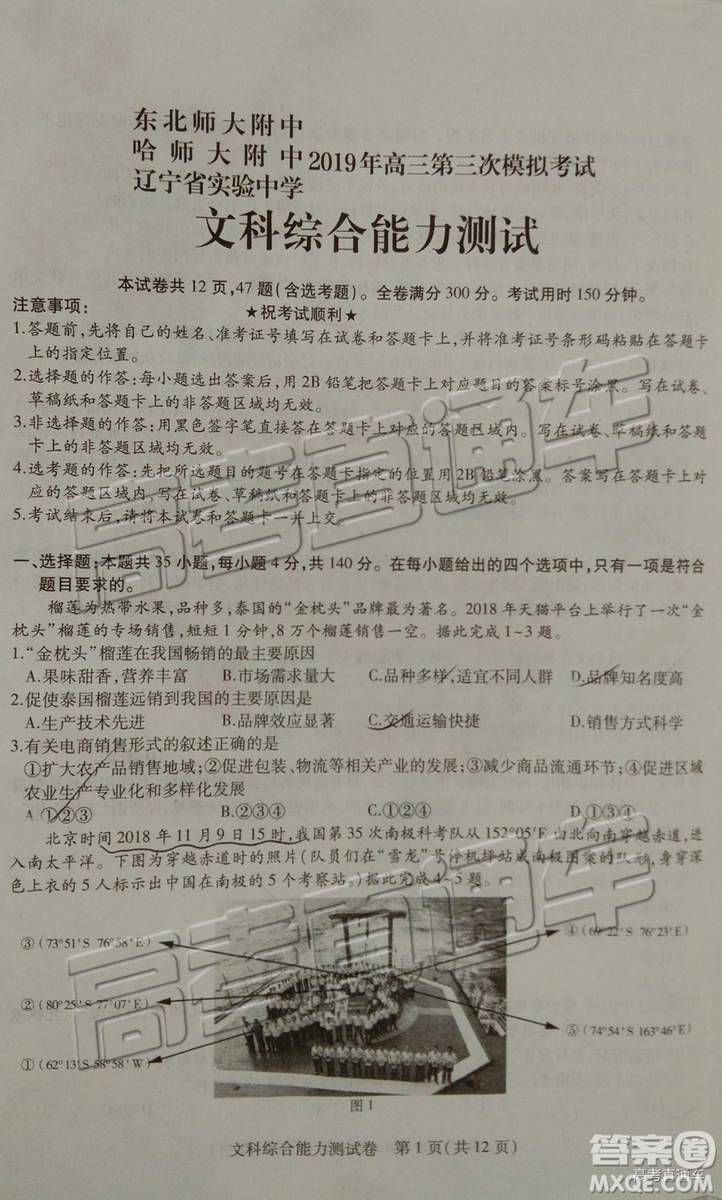 东北师大附中
哈师大附中2019年高三第三次模拟考试
辽宁省实验中学
文科综合能力测试
本试卷共12页,47题(含选考题)。全卷满分300分。考试用时150分钟。
★祝考试顺利★
注意事项:
1.答题前,先将自己的姓名、准考证号填写在试卷和答题卡上,并将准考证号条形码粘贴在答题卡
上的指定位置。
2.选择题的作答:每小题选出答案后,用2B铅笔把答题卡上对应题目的答案标号涂黑。写在试卷、
草稿纸和答题卡上的非答题区域均无效。
3.非选择题的作答:用黑色签字笔直接答在答题卡上对应的答题区域内。写在试卷、草稿纸和答题
卡上的非答题区域均无效。
4.选考题的作答:先把所选题目的题号在答题卡指定的位置用2B铅笔涂黑。答案写在答题卡上对
应的答题区域内,写在试卷、草稿纸和答题卡上的非答题区域均无效。
5.考试结束后,请将本试卷和答题卡一并上交
一、选择题:本题共35小题,每小题4分,共140分。在每小题给出的四个选项中,只有一项是符合
题目要求的。
榴莲为热带水果,品种多,泰国的“金枕头”品牌最为著名。2018年天猫平台上举行了一次“金
枕头”榴莲的专场销售,短短1分钟,8万个榴莲销售一空。据此完成1~3题。
1.“金枕头”榴莲在我国畅销的最主要原因
A.果味甜香,营养丰富 B.市场需求量大 C.品种多样,适宜不同人群 D.品牌知名度高
2.促使泰国榴莲远销到我国的主要原因是
A.生产技术先进 B.品牌效应显著 C.交通运输快捷 D.销售方式科学
3.有关电商销售形式的叙述正确的是
①扩大农产品销售地域;②促进包装、物流等相关产业的发展;③减少商品流通环节;④促进区域
农业生产专业化和多样化发展
A.①②③ B.②③④ C.①②④ D.①③④
北京时间2018年11月9日15时,我国第35次南极科考队从152°05′E由北向南穿越赤道,进
入南太平洋。下图为穿越赤道时的照片(队员们在“雪龙”号停机坪站成南极图案的队形,身穿深
色上衣的5人标示出中国在南极的5个考察站。)据此完成4~5题。
③(73°51′S 76°58′E)
④(69°22′S 76°23′E)
②(80°25′S 77°07′E)
⑤(74°54′S 163°46′E)
①(62°13′S 58°58′W)
图1
文科综合能力测试卷 第1页(共12页)
高考直通车
高考直通车
答案圈
MXQE.COM
高考直通车